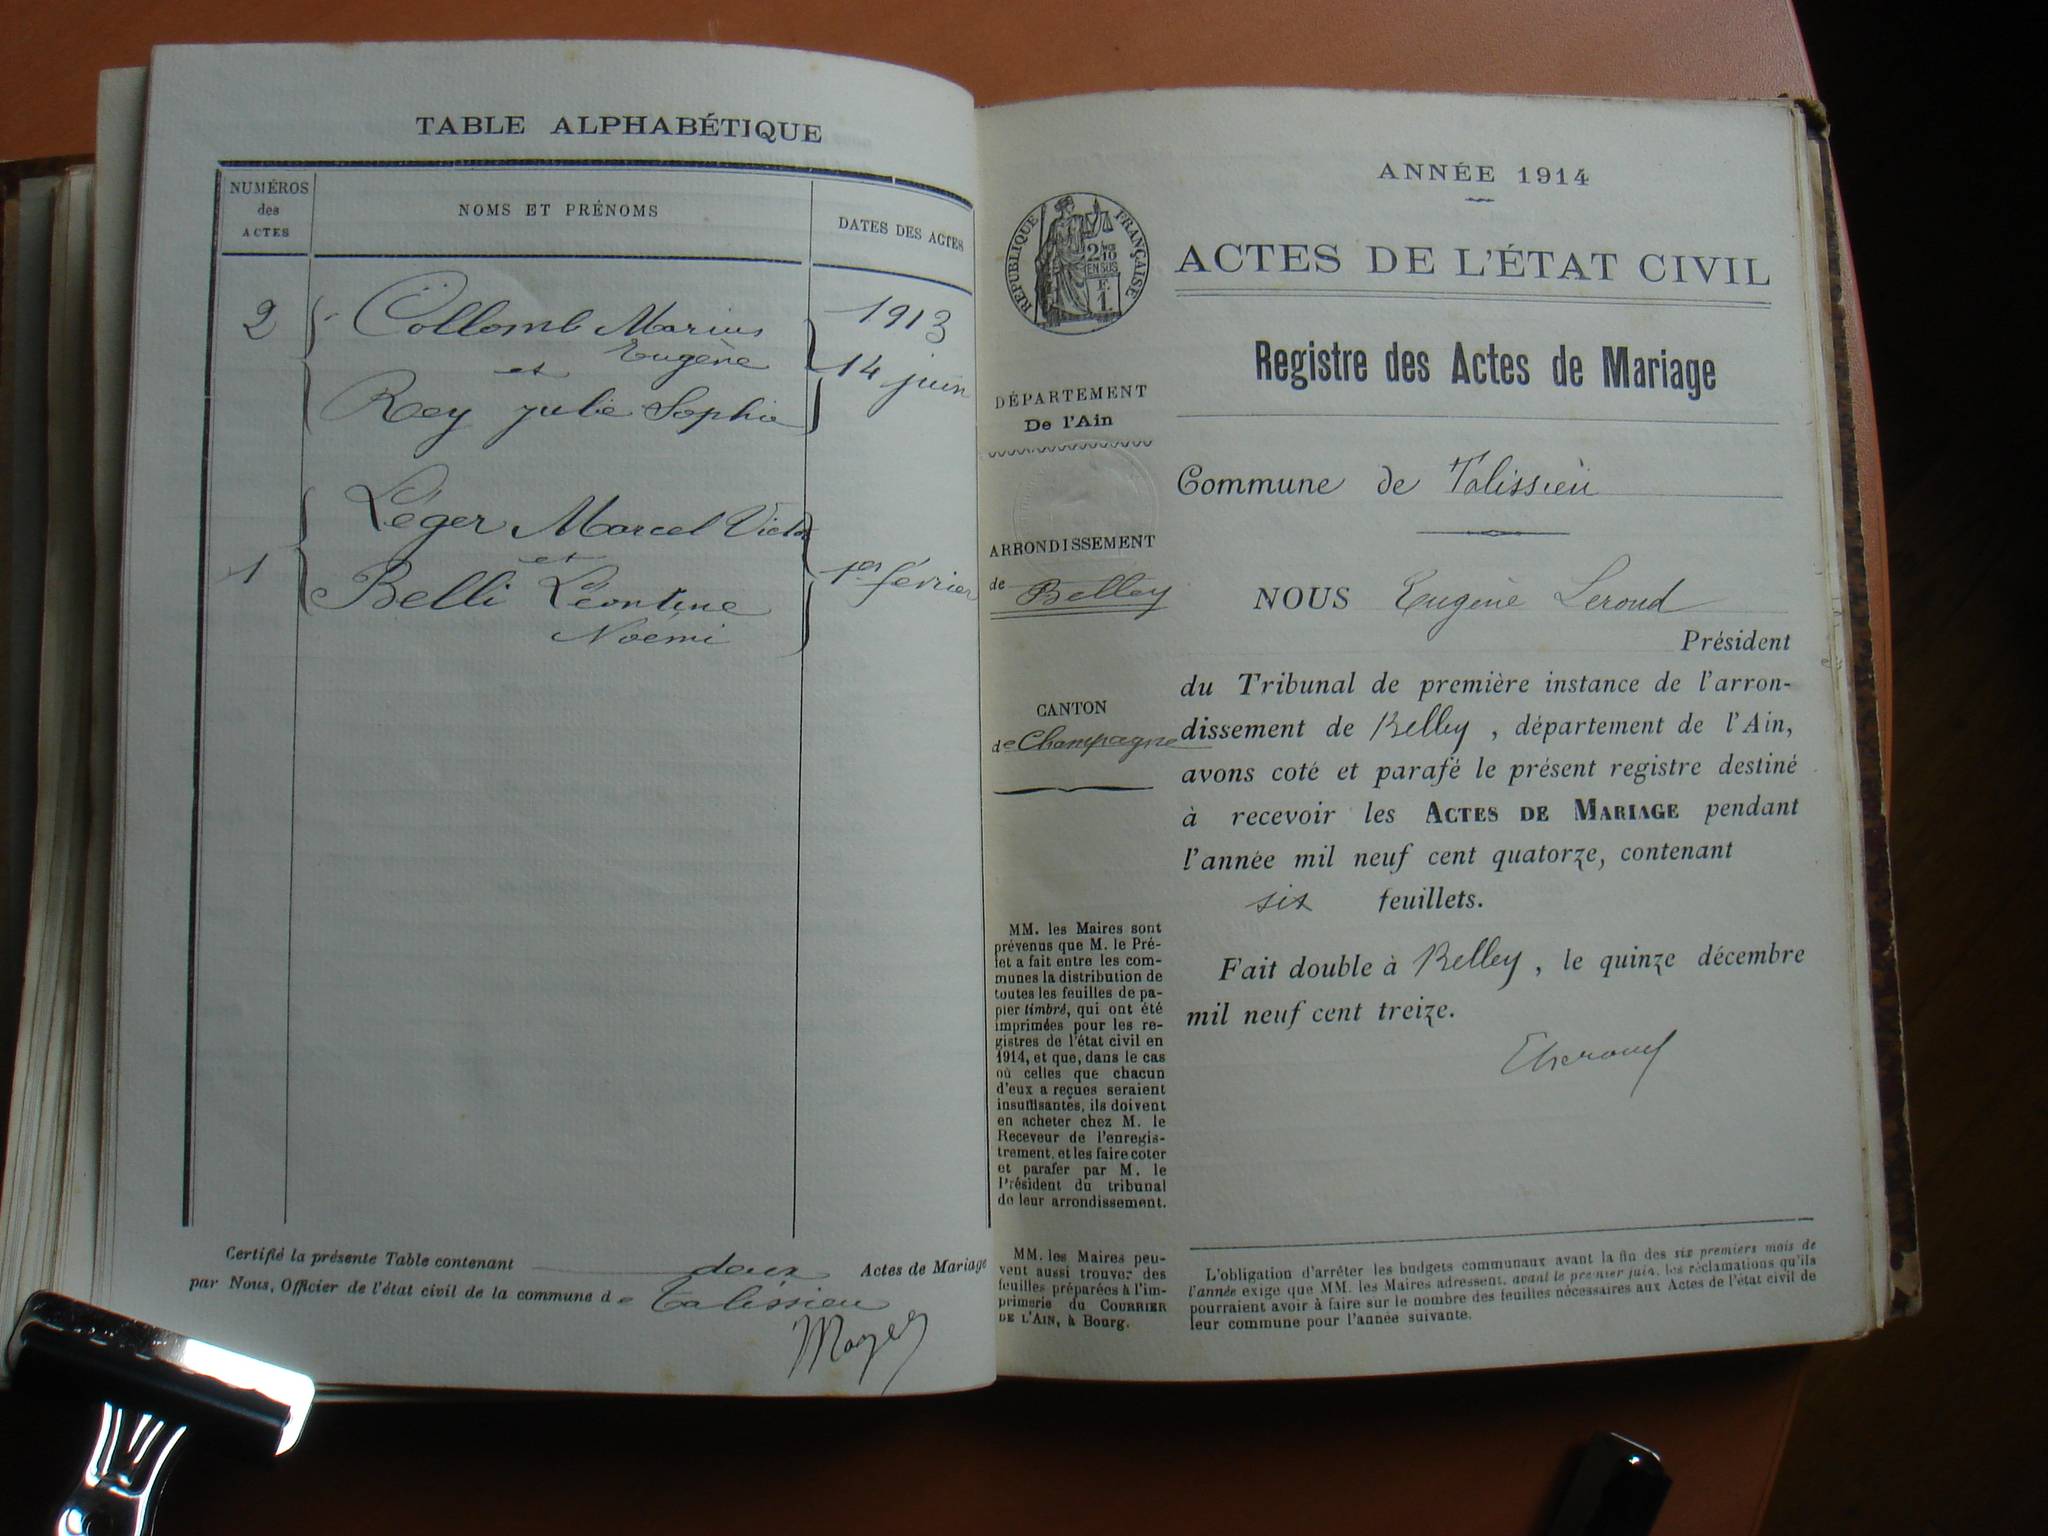 TABLE ALPHABÉTIQUE
NUMÉROS
des
ACTES
NOMS ET PRÉNOMS
DATES DES ACTES
2
Collomb Marius
Eugène
et
Rey Julie Sophie
1913
14 juin
1
Léger Marcel Victor
et
Belli Léontine
Noémi
1er février
Certifié la présente Table contenant deux Actes de Mariage
par Nous, Officier de l'état civil de la commune de Talissieu
ANNÉE 1914
RÉPUBLIQUE FRANÇAISE
2 10
EN SUS
ACTES DE L'ÉTAT CIVIL
Registre des Actes de Mariage
DÉPARTEMENT
De l'Ain
Commune de Talissieu
ARRONDISSEMENT
de Belley
CANTON
de Champagne
NOUS Eugène Leroud
Président
du Tribunal de première instance de l'arron-
dissement de Belley, département de l'Ain,
avons coté et parafé le présent registre destiné
à recevoir les ACTES DE MARIAGE pendant
l'année mil neuf cent quatorze, contenant
six feuillets.
Fait double à Belley, le quinze décembre
mil neuf cent treize.
MM. les Maires sont
prévenus que M. le Pré-
fet a fait entre les com-
munes la distribution de
toutes les feuilles de pa-
pier timbré, qui ont été
imprimées pour les re-
gistres de l'état civil en
1914, et que, dans le cas
où celles que chacun
d'eux a reçues seraient
insuffisantes, ils doivent
en acheter chez M. le
Receveur de l'enregis-
trement, et les faire coter
et parafer par M. le
Président du tribunal
de leur arrondissement.
MM. les Maires peu-
vent aussi trouver des
feuilles préparées à l'im-
primerie du COURRIER
DE L'AIN, à Bourg.
L'obligation d'arrêter les budgets communaux avant la fin des six premiers mois de
l'année exige que MM. les Maires adressent, avant le premier juin, les réclamations qu'ils
pourraient avoir à faire sur le nombre des feuilles nécessaires aux Actes de l'état civil de
leur commune pour l'année suivante.